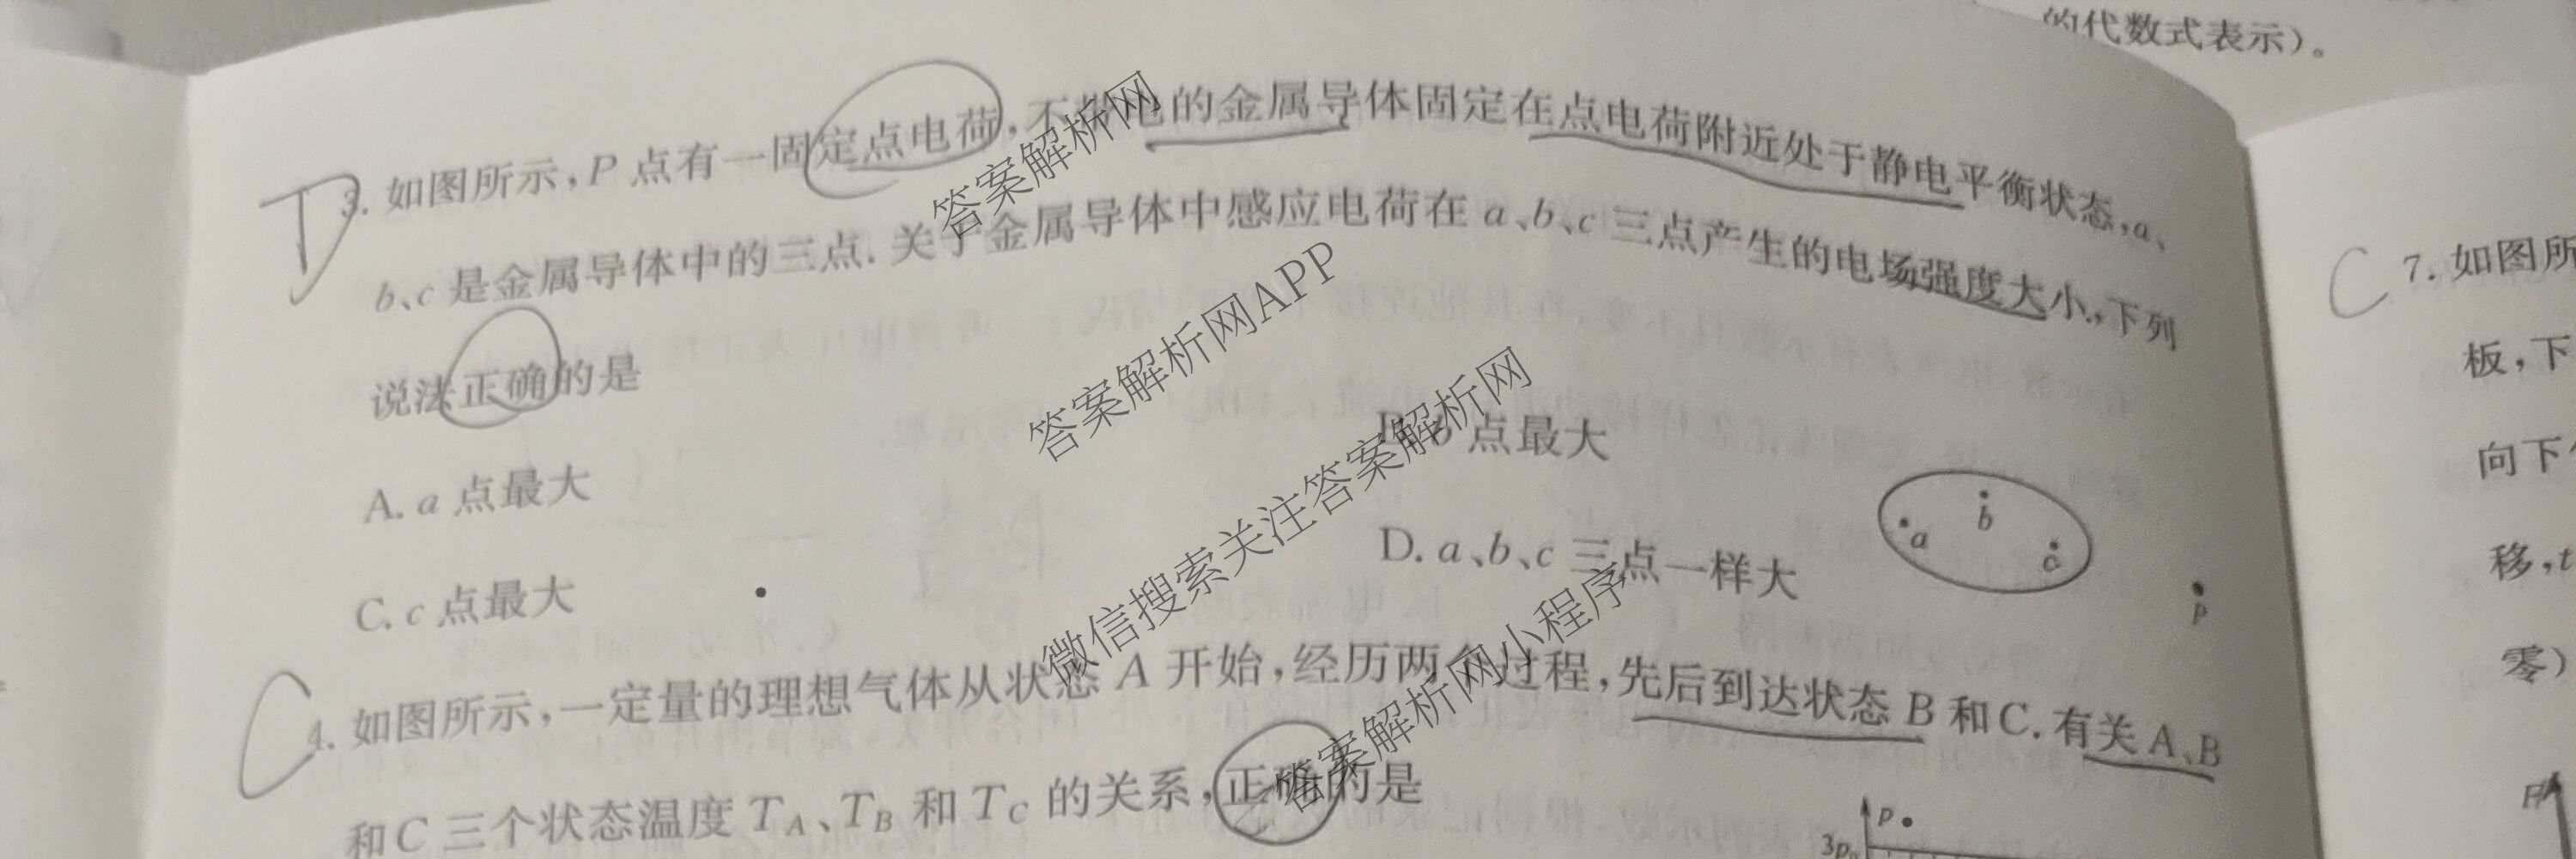 的代数式表示)。
3. 如图所示,P 点有一固定点电荷,不带电的金属导体固定在点电荷附近处于静电平衡状态,a、
b、c 是金属导体中的三点. 关于金属导体中感应电荷在 a、b、c 三点产生的电场强度大小,下列
说法正确的是
A. a 点最大
B. b 点最大
C. c 点最大
D. a、b、c 三点一样大
a
b
c
P
C
4. 如图所示,一定量的理想气体从状态 A 开始,经历两个过程,先后到达状态 B 和 C. 有关 A、B
和 C 三个状态温度 TA、TB 和 TC 的关系,正确的是
p
3p0
C
7. 如图所
板,下
向下
移,t
零)
F
答案解析网
答案解析网APP
微信搜索关注答案解析网
答案解析网小程序